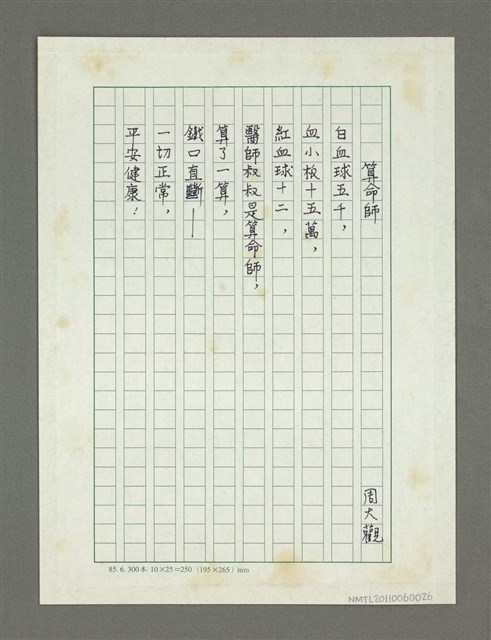 算命師
周大觀
白血球五千，
血小板十五萬，
紅血球十二，
醫師叔叔是算命師，
算了一算，
鐵口直斷——
一切正常，
平安健康！
85. 6. 300本 10×25=250 (195×265) mm
NMTL20110060026